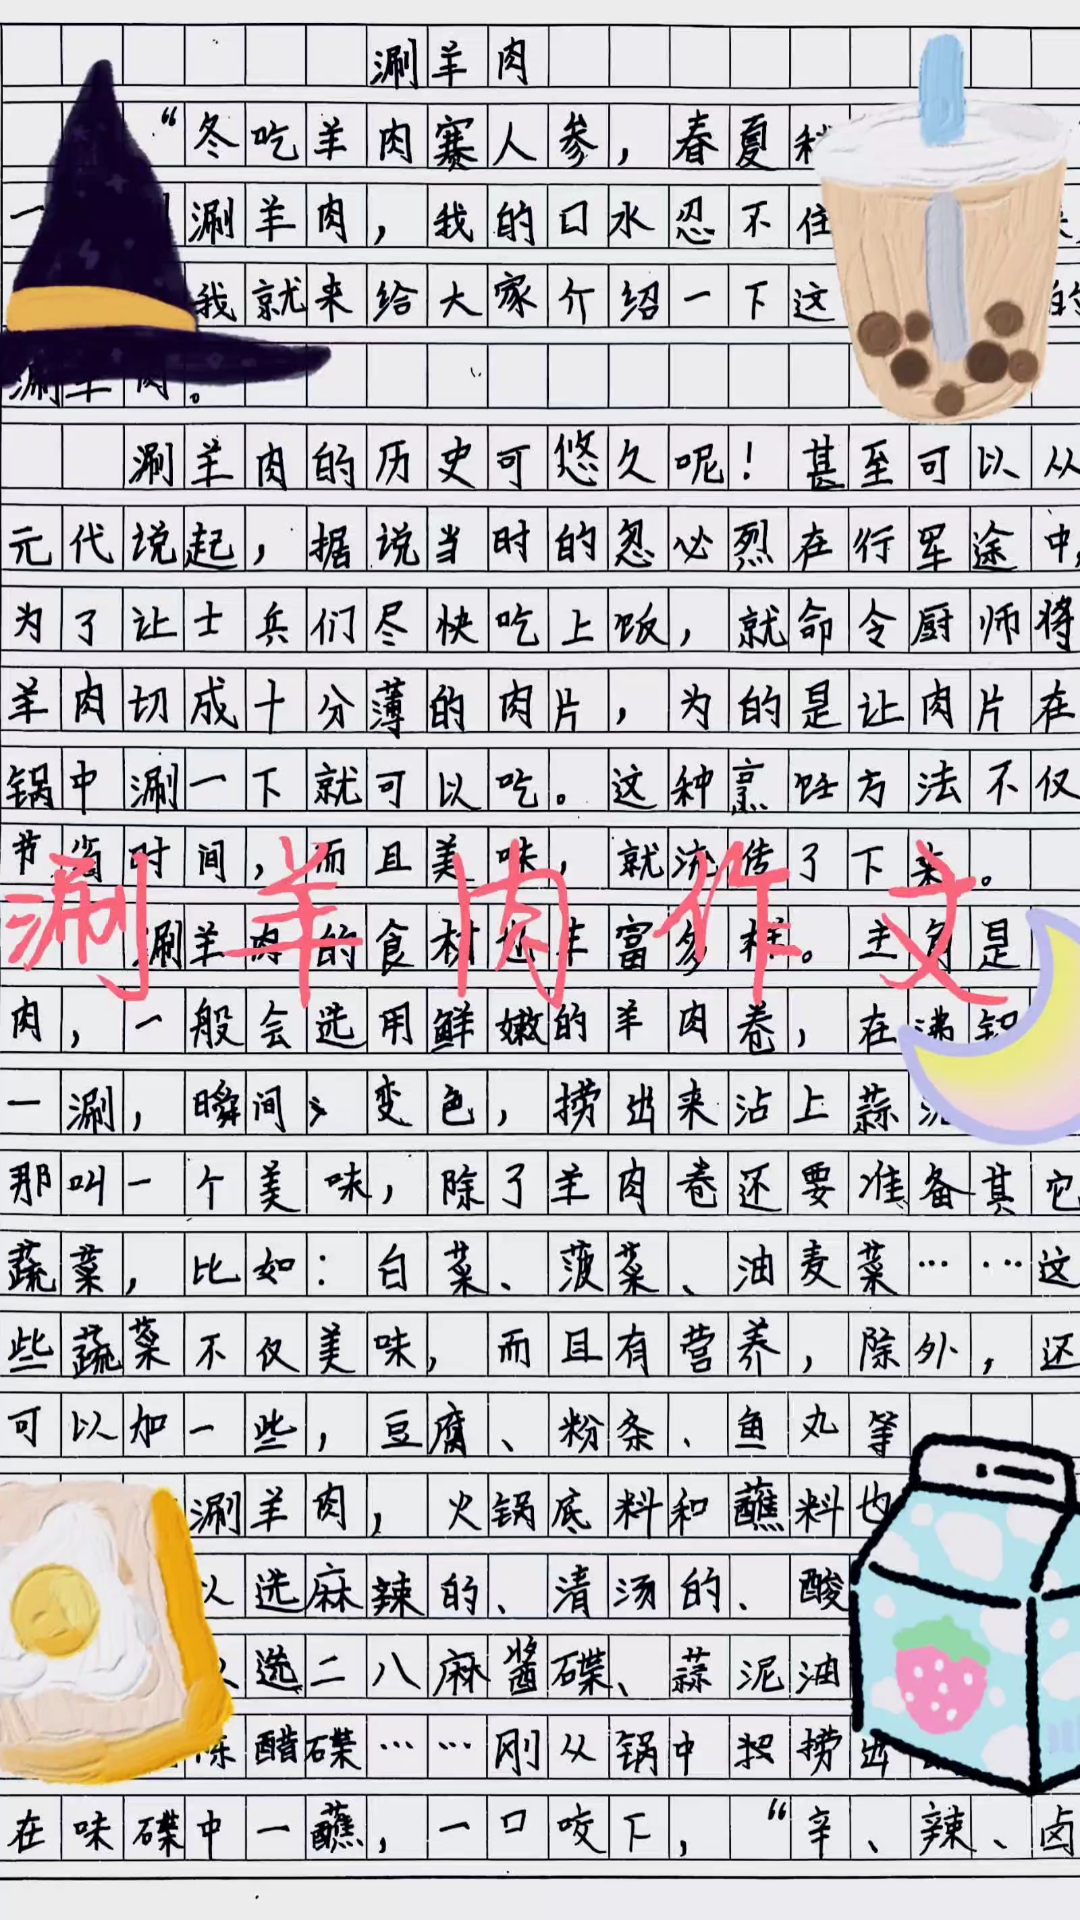 涮羊肉
“冬吃羊肉赛人参，春夏秋
一 涮羊肉，我的口水忍不住
我就来给大家介绍一下这 的
涮羊肉。
涮羊肉的历史可悠久呢！甚至可以从
元代说起，据说当时的忽必烈在行军途中，
为了让士兵们尽快吃上饭，就命令厨师将
羊肉切成十分薄的肉片，为的是让肉片在
锅中涮一下就可以吃。这种烹饪方法不仅
节省时间，而且美味，就流传了下来。
涮羊肉作文
涮羊肉的食材还丰富多样。主角是
肉，一般会选用鲜嫩的羊肉卷，在沸锅
一涮，瞬间变色，捞出来沾上蒜泥
那叫一个美味，除了羊肉卷还要准备其它
蔬菜，比如：白菜、菠菜、油麦菜……这
些蔬菜不仅美味，而且有营养，除外，还
可以加一些，豆腐、粉条、鱼丸等
涮羊肉，火锅底料和蘸料也
以选麻辣的、清汤的、酸
选二八麻酱碟、蒜泥油
陈醋碟……刚从锅中捞出
在味碟中一蘸，一口咬下，“辛、辣、卤